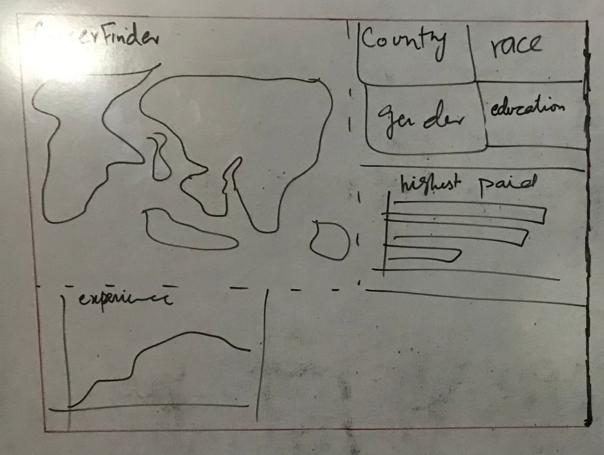 Finder
Country race
gender education
highest paid
experience